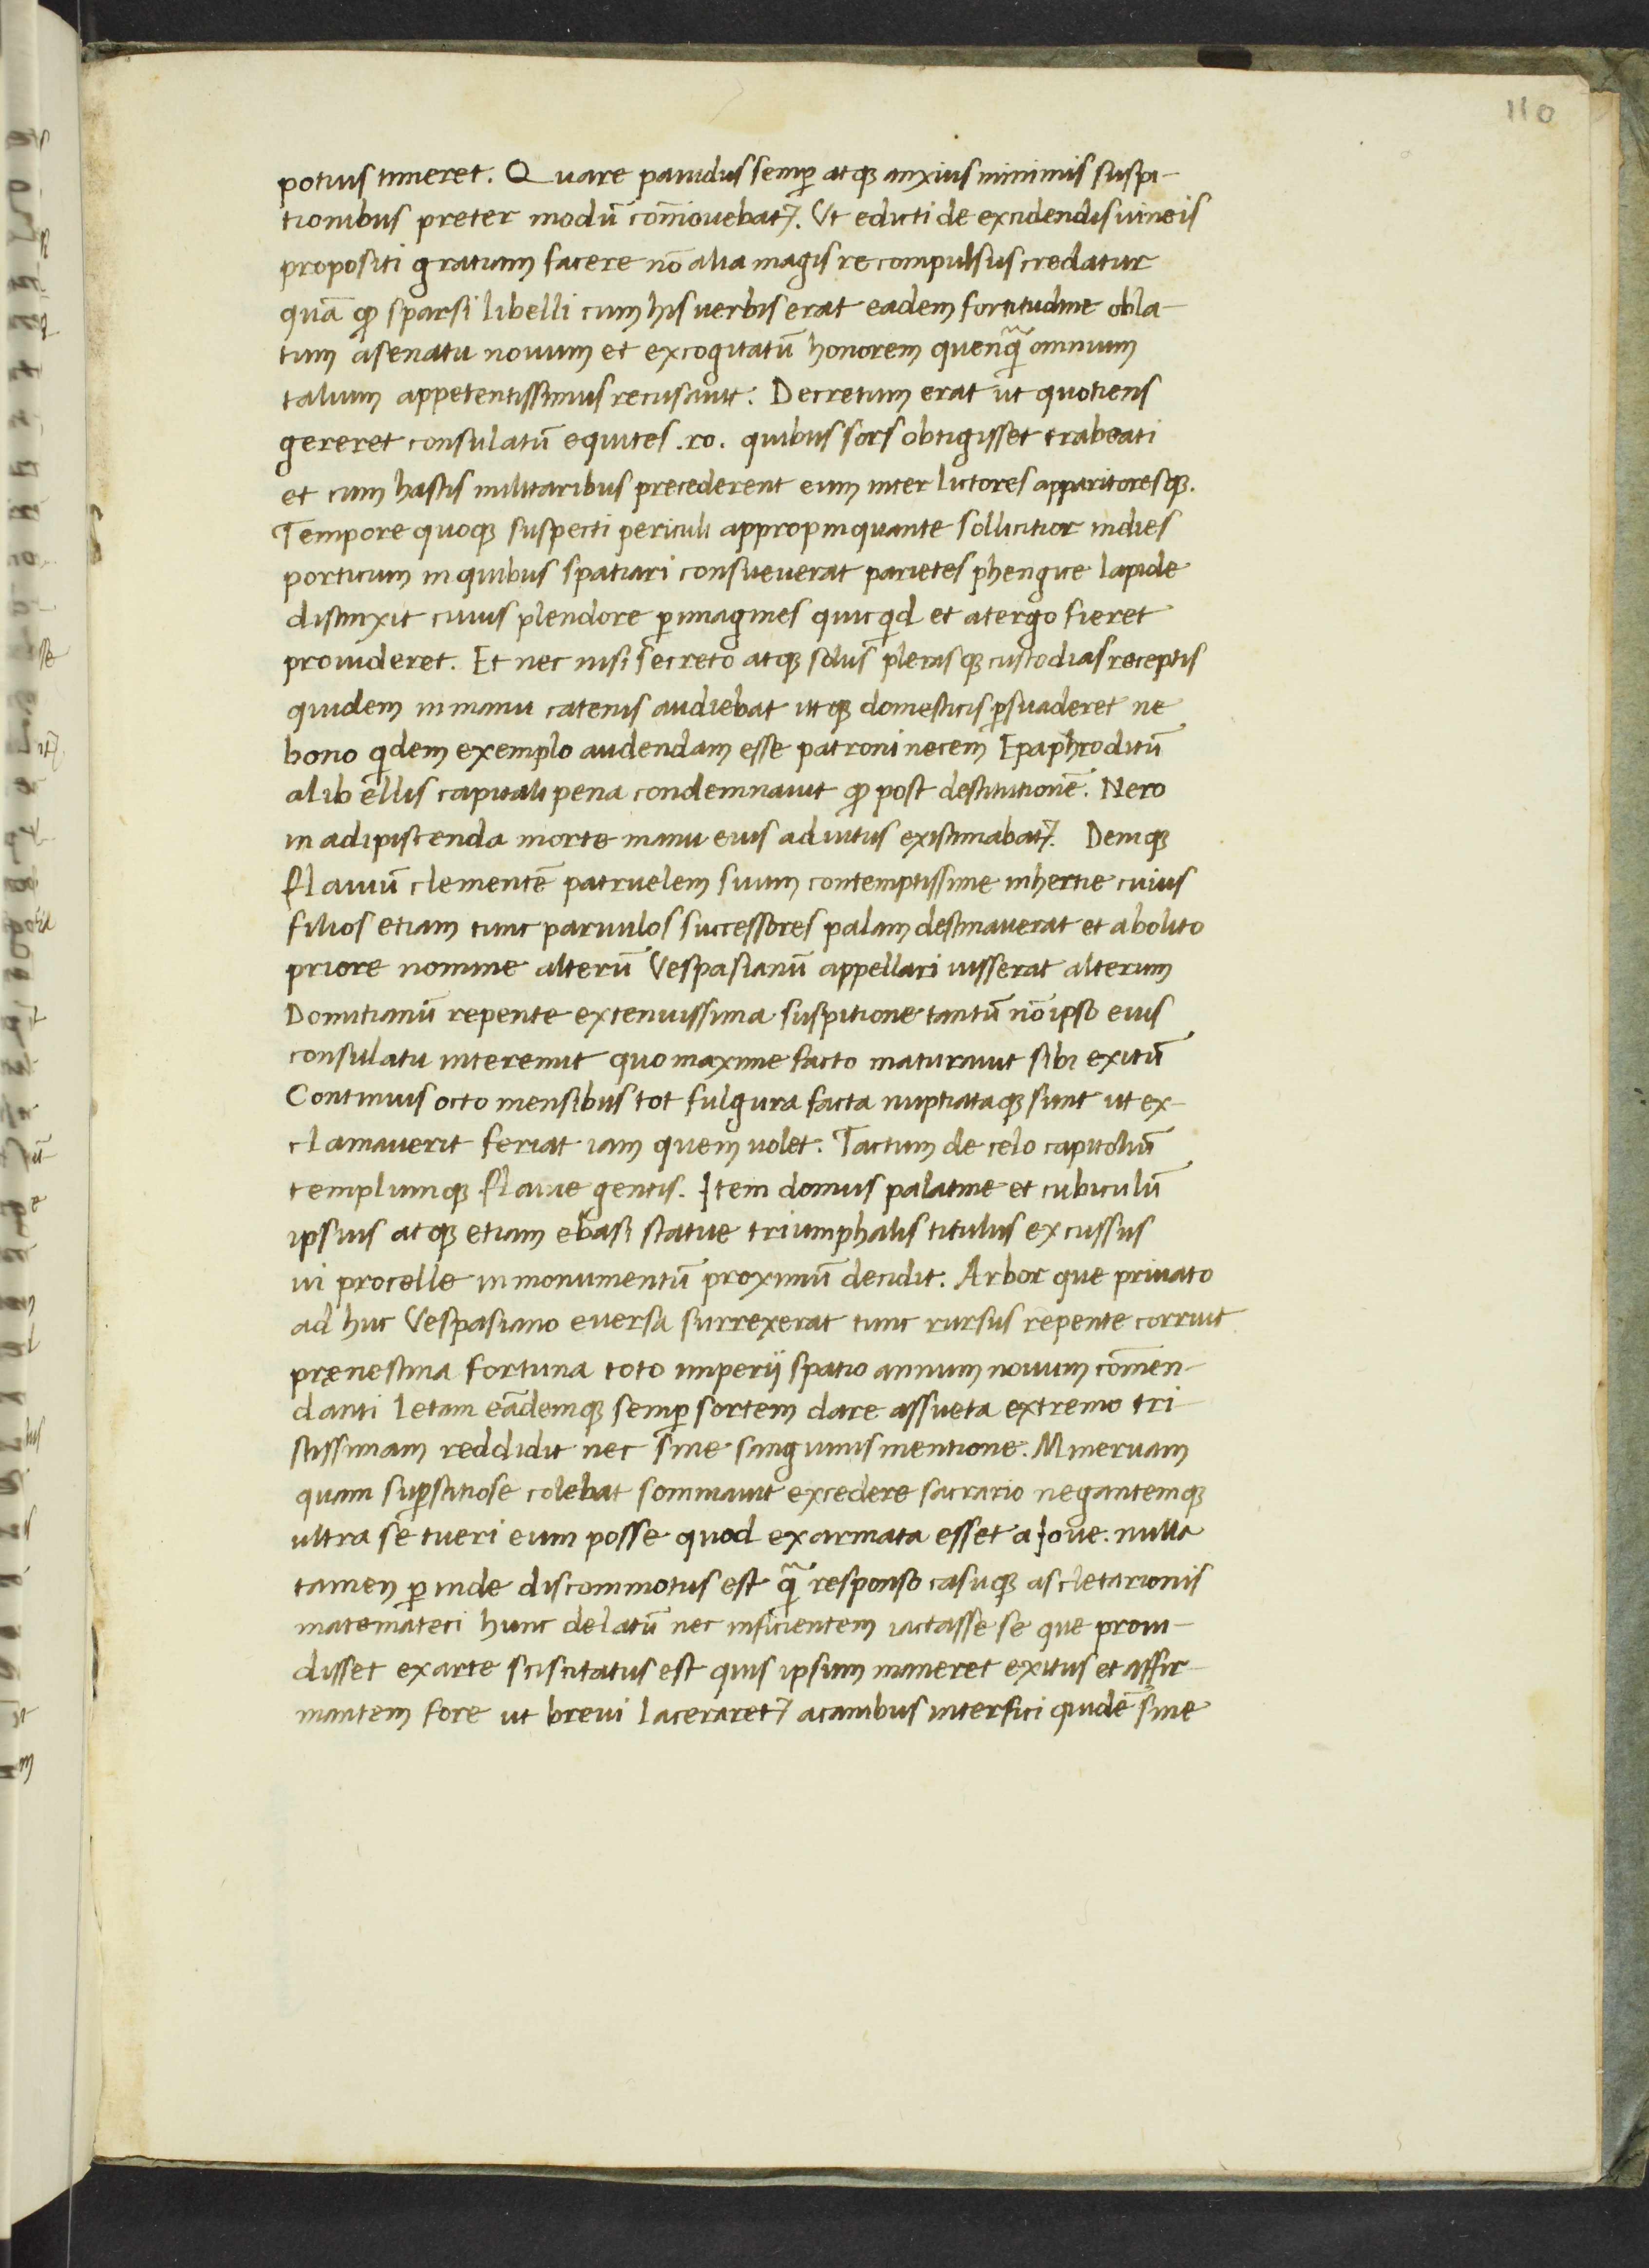 110
potius timeret. Quare pauidus semꝑ atqꝫ anxius minimis suspi-
tionibus preter modū com̄ouebat᷑. Ut edicti de excidendis uineis
propositi gratiam facere nō alia magis re compulsus credatur
quā ꝙ sparsi libelli cum his uerbis erat eadem fortitudine obla-
tum a senatu nouum et excogitatū honorem quenq̃ omnium
talium appetentissimus recusauit: Decretum erat ut quotiens
gereret consulatū equites .ro. quibus sors obtigisset trabeati
et cum hastis militaribus precederent eum inter lictores apparitoresqꝫ.
Tempore quoqꝫ suspecti periculi appropinquante sollicitior indies
porticum in quibus spatiari consueuerat parietes phengite lapide
distinxit cuius plendore ꝑ imagines quicqd et a tergo fieret
prouideret. Et nec nisi secreto atqꝫ solus plerasqꝫ custodias receptis
quidem in manu catenis audiebat utqꝫ domesticis ꝑsuaderet ne
bono qdem exemplo audendam esse patroni necem Epaphroditū
a libellis capitali pena condemnauit ꝙ post destitutionē. Nero
in adipiscenda morte manu eius adiutus existimabat᷑. Deniqꝫ
flauiū clementē patruelem suum contemptissime inhertie cuius
filios etiam tunc paruulos successores palam destinauerat et abolito
priore nomine alterū Vespasianū appellari iusserat alterum
Domitianū repente ex tenuissima suspitione tantū nō ipso eius
consulatu interemit quo maxime facto maturauit sibi exitū
Continuis octo mensibus tot fulgura facta nuptiataqꝫ sunt ut ex-
clamauerit feriat iam quem uolet. Tactum de celo capitoliū
templumqꝫ flauie gentis. Item domus palatine et cubiculū
ipsius atqꝫ etiam e basi statue triumphalis titulus excussus
ui procelle in monumentū proximū decidit. Arbor que priuato
ad huc Vespasiano euersa surrexerat tunc rursus repente corruit
pręnestina fortuna toto imperij spatio annum nouum com̄en-
danti letam eādemqꝫ semꝑ sortem dare assueta extremo tri
stissimam reddidit nec sine sanguinis mentione. Mineruam
quam suꝑstitiose colebat somniauit excedere sacrario negantemqꝫ
ultra se tueri eum posse quod exarmata esset a Ioue: nulla
tamen ꝑinde discommotus est q̃ responso casuqꝫ ascletarionis
matemateci hunc delatū nec inficientem iactasse se que proui-
disset ex arte sciscitatus est quis ipsum maneret exitus et affir-
mantem fore ut breui laceraret᷑ a canibus interfici quidē sine